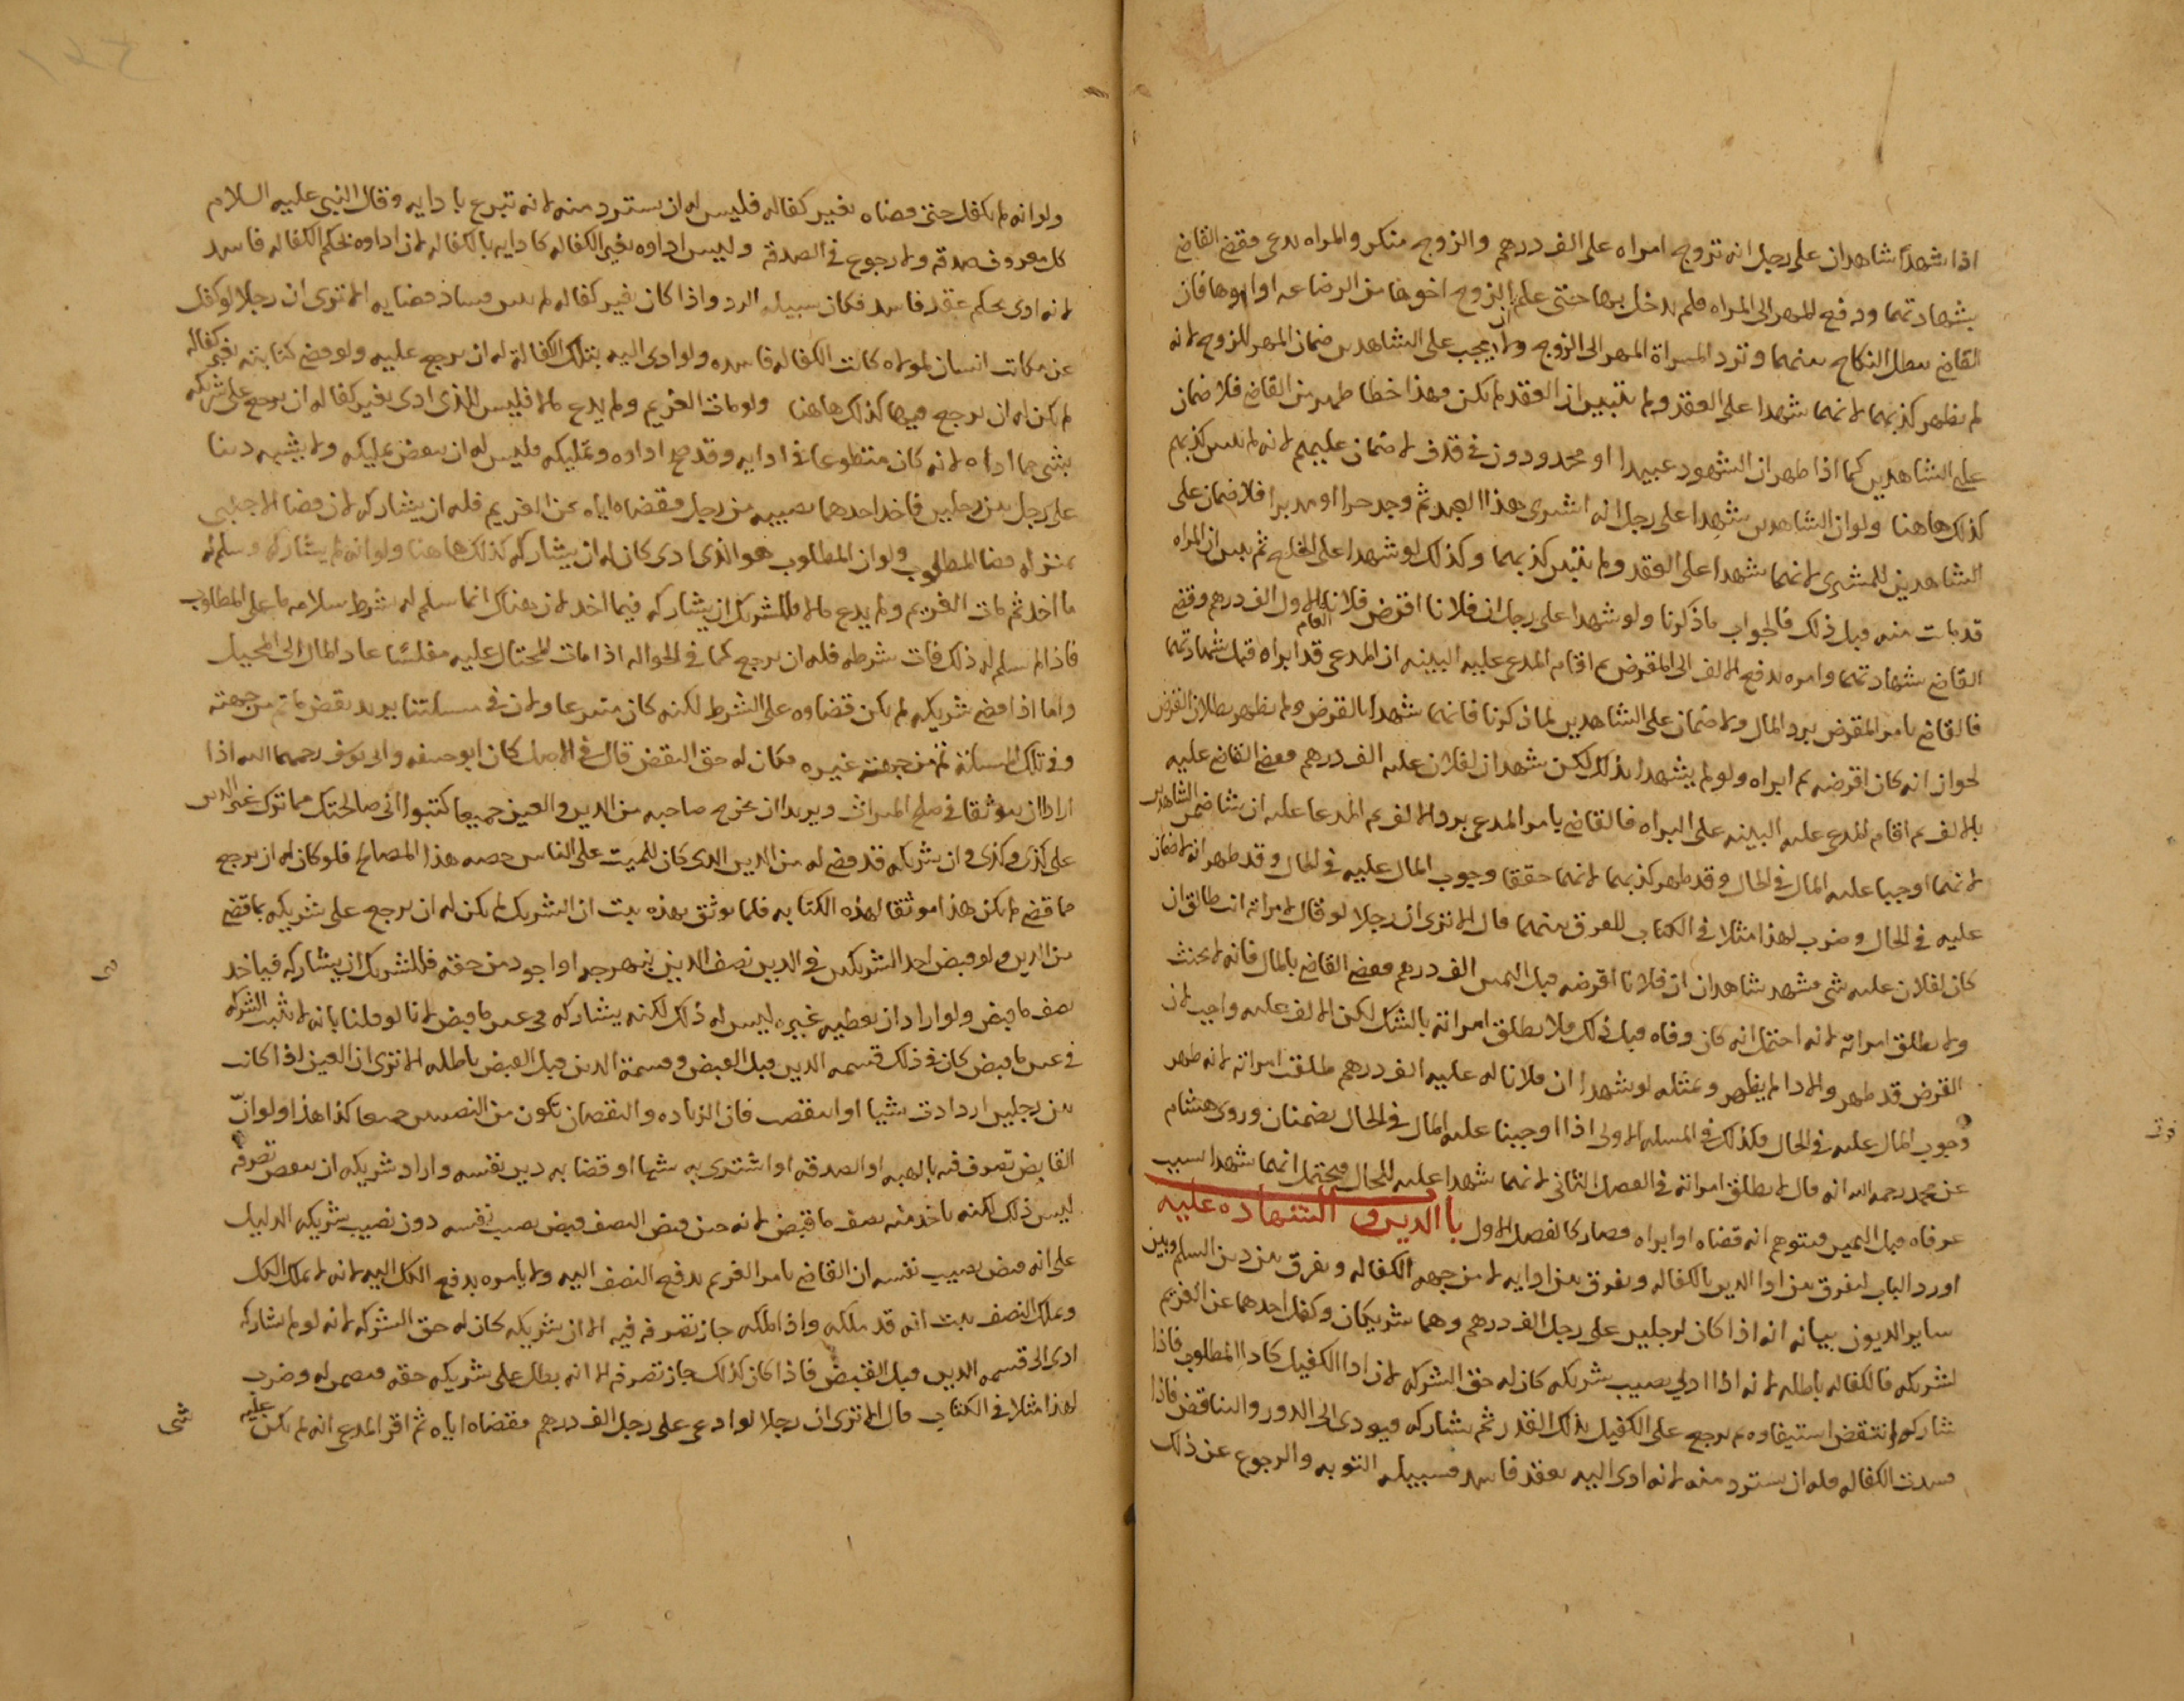 اذا شهدا شاهدان على رجل انه تزوج امراه على الف درهم والزوج منكر والمراه تدعى فقضى القاضى
بشهادتهما ودفع المهر الى المراه فلم يدخل بها حتى علم ان الزوج اخوها من الرضاعه او ابوها فان
القاضى يبطل النكاح بينهما وترد المراة المهر الى الزوج ولا يجب على الشاهدين ضمان المهر للزوج لانه
لم يظهر كذبهما لانهما شهدا على العقد ولم يتبين ان العقد لم يكن وهذا خطا ظهر من القاضى فلا ضمان
على الشاهدين كما اذا ظهر ان الشهود عبيدا او محدودون فى قذف لا ضمان عليهم لانه لم يتبين كذبهم
كذلك هاهنا ولو ان الشاهدين شهدا على رجل انه اشترى هذا العبد ثم وجد حرا او مدبرا فلا ضمان على
الشاهدين للمشترى لانهما شهدا على العقد ولم يتبين كذبهما وكذلك لو شهدا على الخلع ثم تبين ان المراه
قد بانت منه قبل ذلك فالجواب ما ذكرنا ولو شهدا على رجل ان فلانا اقرض فلانا العام الاول الف درهم وقضى
القاضى بشهادتهما وامره بدفع الالف الى المقرض ثم اقام المدعى عليه البينه ان المدعى قد ابراه قبل شهادتهما
فالقاضى يامر المقرض برد المال ولا ضمان على الشاهدين لما ذكرنا فانهما شهدا بالقرض ولم يظهر بطلان القرض
لجواز انه كان اقرضه ثم ابراه ولو لم يشهدا بذلك لكن شهدا ان لفلان عليه الف درهم فقضى القاضى عليه
بالالف ثم اقام المدعى عليه البينه على البراه فالقاضى يامر المدعى برد الالف ثم المدعا عليه ان شا ضمن الشاهدين
لانهما اوجبا عليه المال فى الحال وقد ظهر كذبهما لانهما حققا وجوب المال عليه فى الحال وقد ظهر انه لا ضمان
عليه فى الحال وضرب لهذا مثلا فى الكتاب للفرق بينهما قال الا ترى ان رجلا لو قال لامراته انت طالق ان
كان لفلان عليه شى فشهد شاهدان ان فلانا اقرضه قبل اليمين الف درهم فقضى القاضى بالمال فانه لا يحنث
ولا يطلق امراته لانه احتمل انه كان وفاه قبل ذلك فلا يطلق امراته بالشك لكن الالف عليه واجب لان
القرض قد ظهر والادا لم يظهر وبمثله لو شهدا ان فلانا له عليه الف درهم طلقت امراته لانه ظهر
وجوب المال عليه فى الحال فكذلك فى المسله الاولى اذا اوجبنا عليه المال فى الحال يضمنان وروى هشام
عن محمد رحمه الله انه قال لا يطلق امراته فى الفصل الثانى لانهما شهدا عليه للحال فيحتمل انهما شهدا بسبب
عرفاه قبل اليمين فيتوهم انه قضاه او ابراه فصار كالفصل الاول باب الدين والشهاده عليه
اورد الباب ليفرق بين ادا الدين بالكفاله ويفرق بين ادايه لا من جهه الكفاله ويفرق بين دين السلم وبين
ساير الديون بيانه انه اذا كان لرجلين على رجل الف درهم وهما شريكان وكفل احدهما عن الغريم
لشريكه فالكفاله باطله لانه اذا ادى نصيب شريكه كان له حق الشركه لان ادا الكفيل كادا المطلوب فاذا
شاركه انتقض استيفاوه ثم يرجع على الكفيل بذلك القدر ثم يشاركه فيودى الى الدور والتناقض فاذا
فسدت الكفاله فله ان يسترد منه لانه ادى اليه بعقد فاسد فسبيله التوبه والرجوع عن ذلك
ولو انه لم يكفل حتى قضاه بغير كفاله فليس له ان يسترد منه لانه تبرع بادايه وقال النبى عليه السلام
كل معروف صدقه ولا رجوع فى الصدقه وليس اداوه بغير الكفاله كادايه بالكفاله لان اداوه بحكم الكفاله فاسد
لانه ادى بحكم عقد فاسد فكان سبيله الرد واذا كان بغير كفاله لم يتبين فساد قضايه الا ترى ان رجلا لو كفل
عن مكاتب انسان لمولاه كانت الكفاله فاسده ولو ادى اليه بتلك الكفالة له ان يرجع عليه ولو قضى كتابته بغير كفاله
لم يكن له ان يرجع فيها كذلك هاهنا ولو مات الغريم ولم يدع مالا فليس للذى ادى بغير كفاله ان يرجع على شريكه
بشى مما اداه لانه كان متطوعا فى ادايه وقد صح اداوه وتمليكه فليس له ان ينقض تمليكه ولا يشبه دينا
على رجل بين رجلين فاخذ احدهما نصيبه من رجل فقضاه اياه عن الغريم فله ان يشاركه لان قضا الاجنبى
بمنزله قضا المطلوب ولو ان المطلوب هو الذى ادى كان له ان يشاركه كذلك هاهنا ولو انه لم يشاركه وسلم له
ما اخذ ثم مات الغريم ولم يدع مالا فللشريك ان يشاركه فيما اخذ لان هناك انما سلم له بشرط سلامه ما على المطلوب
فاذا لم يسلم له ذلك فات شرطه فله ان يرجع كما فى الحواله اذا مات المحتال عليه مفلسا عاد المال الى المحيل
واما اذا قضى شريكه لم يكن قضاوه على الشرط لكنه كان متبرعا ولان فى مسلتنا يريد نقض ما تم من جهته
وفى تلك المسلة تم من جهته غيره فكان له حق النقض قال فى الاصل كان ابو حنيفه وابو يوسف رحمهما الله اذا
ارادا ان يوثقا فى صلح الميراث ويريدا ان يخرج صاحبه من الدين والعين جميعا كتبوا انى صالحتك مما ترك غير الدين
على كذى وكذى وان شريكه قد قضى له من الدين الذى كان للميت على الناس حصه هذا المصالح فلو كان له ان يرجع
مما قضى لم يكن هذا موثقا لهذه الكتابه فلما يوثق بهذه ثبت ان الشريك لم يكن له ان يرجع على شريكه بما قضى
من الدين ولو قبض احد الشريكين فى الدين نصف الدين نبهرجه او اجود من حقه فللشريك ان يشاركه فياخذ
نصف ما قبض ولو اراد ان يعطيه غيره ليس له ذلك لكنه يشاركه فى عين ما قبض لانا لو قلنا بانه لا يثبت الشركه
فى عين ما قبض كان فى ذلك قسمه الدين قبل القبض وقسمة الدين قبل القبض باطله الا ترى ان العين اذا كانت
بين رجلين ازدادت شيا او انتقص فان الزياده والنقصان تكون من النصيبين جميعا كذا هذا ولو ان
القابض تصرف فيه بالهبه او الصدقه او اشترى به شيا او قضا به دين نفسه واراد شريكه ان ينقض تصرفه
ليس ذلك لكنه ياخذ منه نصف ما قبض لانه حين قبض النصف قبض نصيب نفسه دون نصيب شريكه الدليل
على انه قبض نصيب نفسه ان القاضى يامر الغريم بدفع النصف اليه ولا يامره بدفع الكل اليه لانه لا يملك الكل
ويملك النصف ثبت انه قد ملكه واذا ملكه جاز تصرفه فيه الا ان شريكه كان له حق الشركه لانه لو لم يشاركه
ادى الى قسمه الدين قبل القبض فاذا كان كذلك جاز تصرفه الا انه يبطل على شريكه حقه فيضمن له وضرب
لهذا مثلا فى الكتاب قال الا ترى ان رجلا لو ادعى على رجل الف درهم فقضاه اياه ثم اقر المدعى انه لم يكن عليه
شى